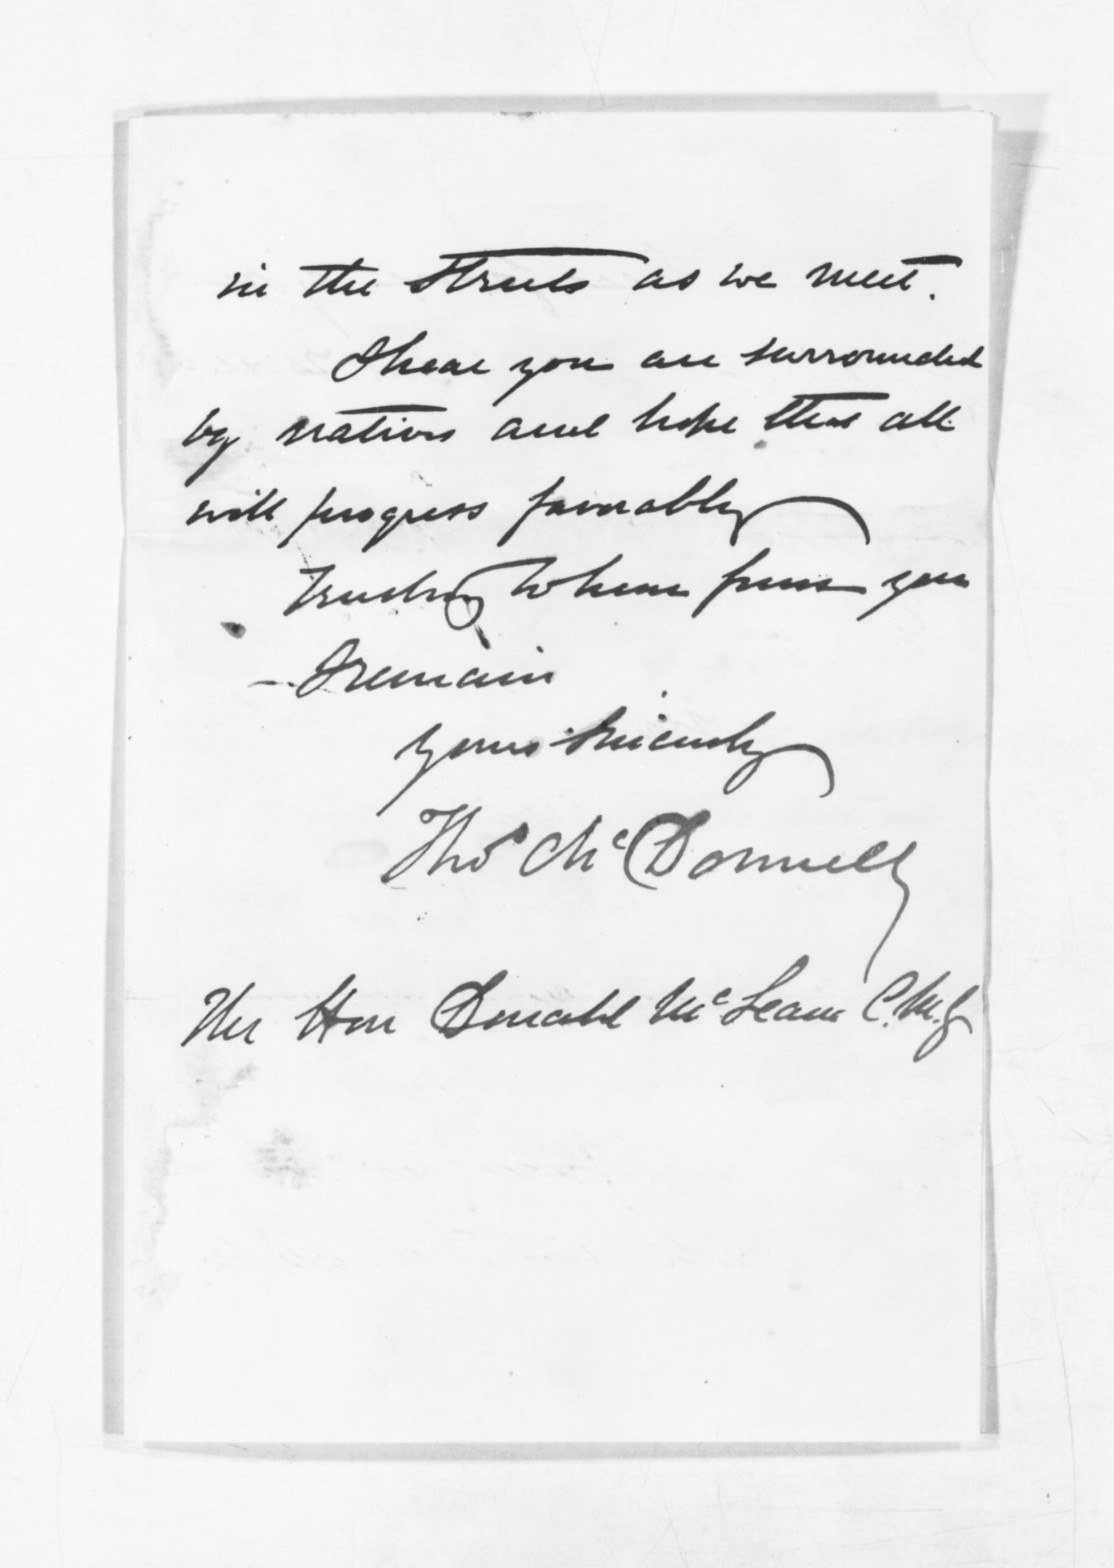 in the Streets as we meet.
I hear you are surrounded
by natives and hope that all
will progress favorably
Trusting to hear from you
- I remain
yours sincerely
Thos McDonnell
The Hon Donald McLean C.M.G